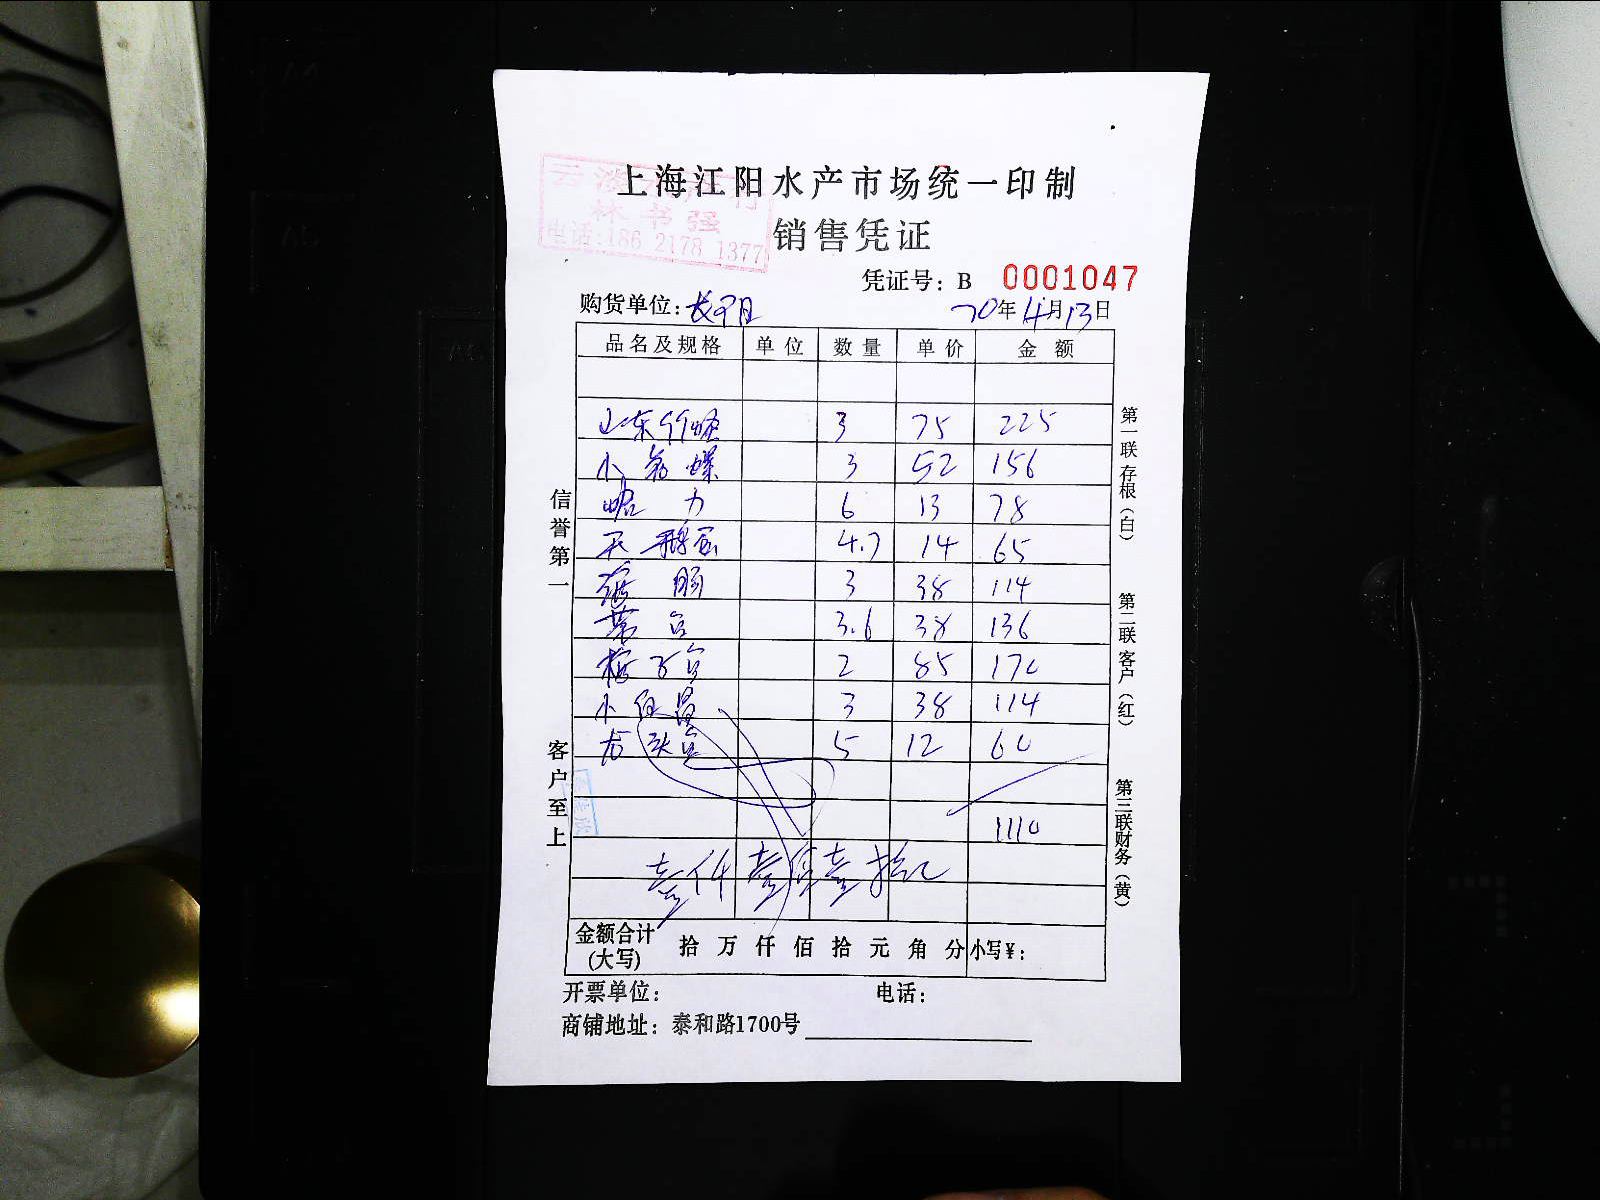 上海江阳水产市场统一印制
林书强
销售凭证
电话:186 2178 1377
凭证号: B 0001047
购货单位: 长阳 20年4月13日
品名及规格 单位 数量 单价 金额
山东 3 75 225
小 螺 3 52 156
蛤 力 6 13 78
天鹅蛋 4.7 14 65
海肠 3 38 114
带鱼 3.6 38 136
梅子鱼 2 85 170
小 3 38 114
龙头鱼 5 12 60
1110
壹仟壹佰壹拾元
金额合计(大写) 拾 万 仟 佰 拾 元 角 分 小写¥:
开票单位: 电话:
商铺地址: 泰和路1700号
信誉第一
客户至上
第一联存根(白)
第二联客户(红)
第三联财务(黄)